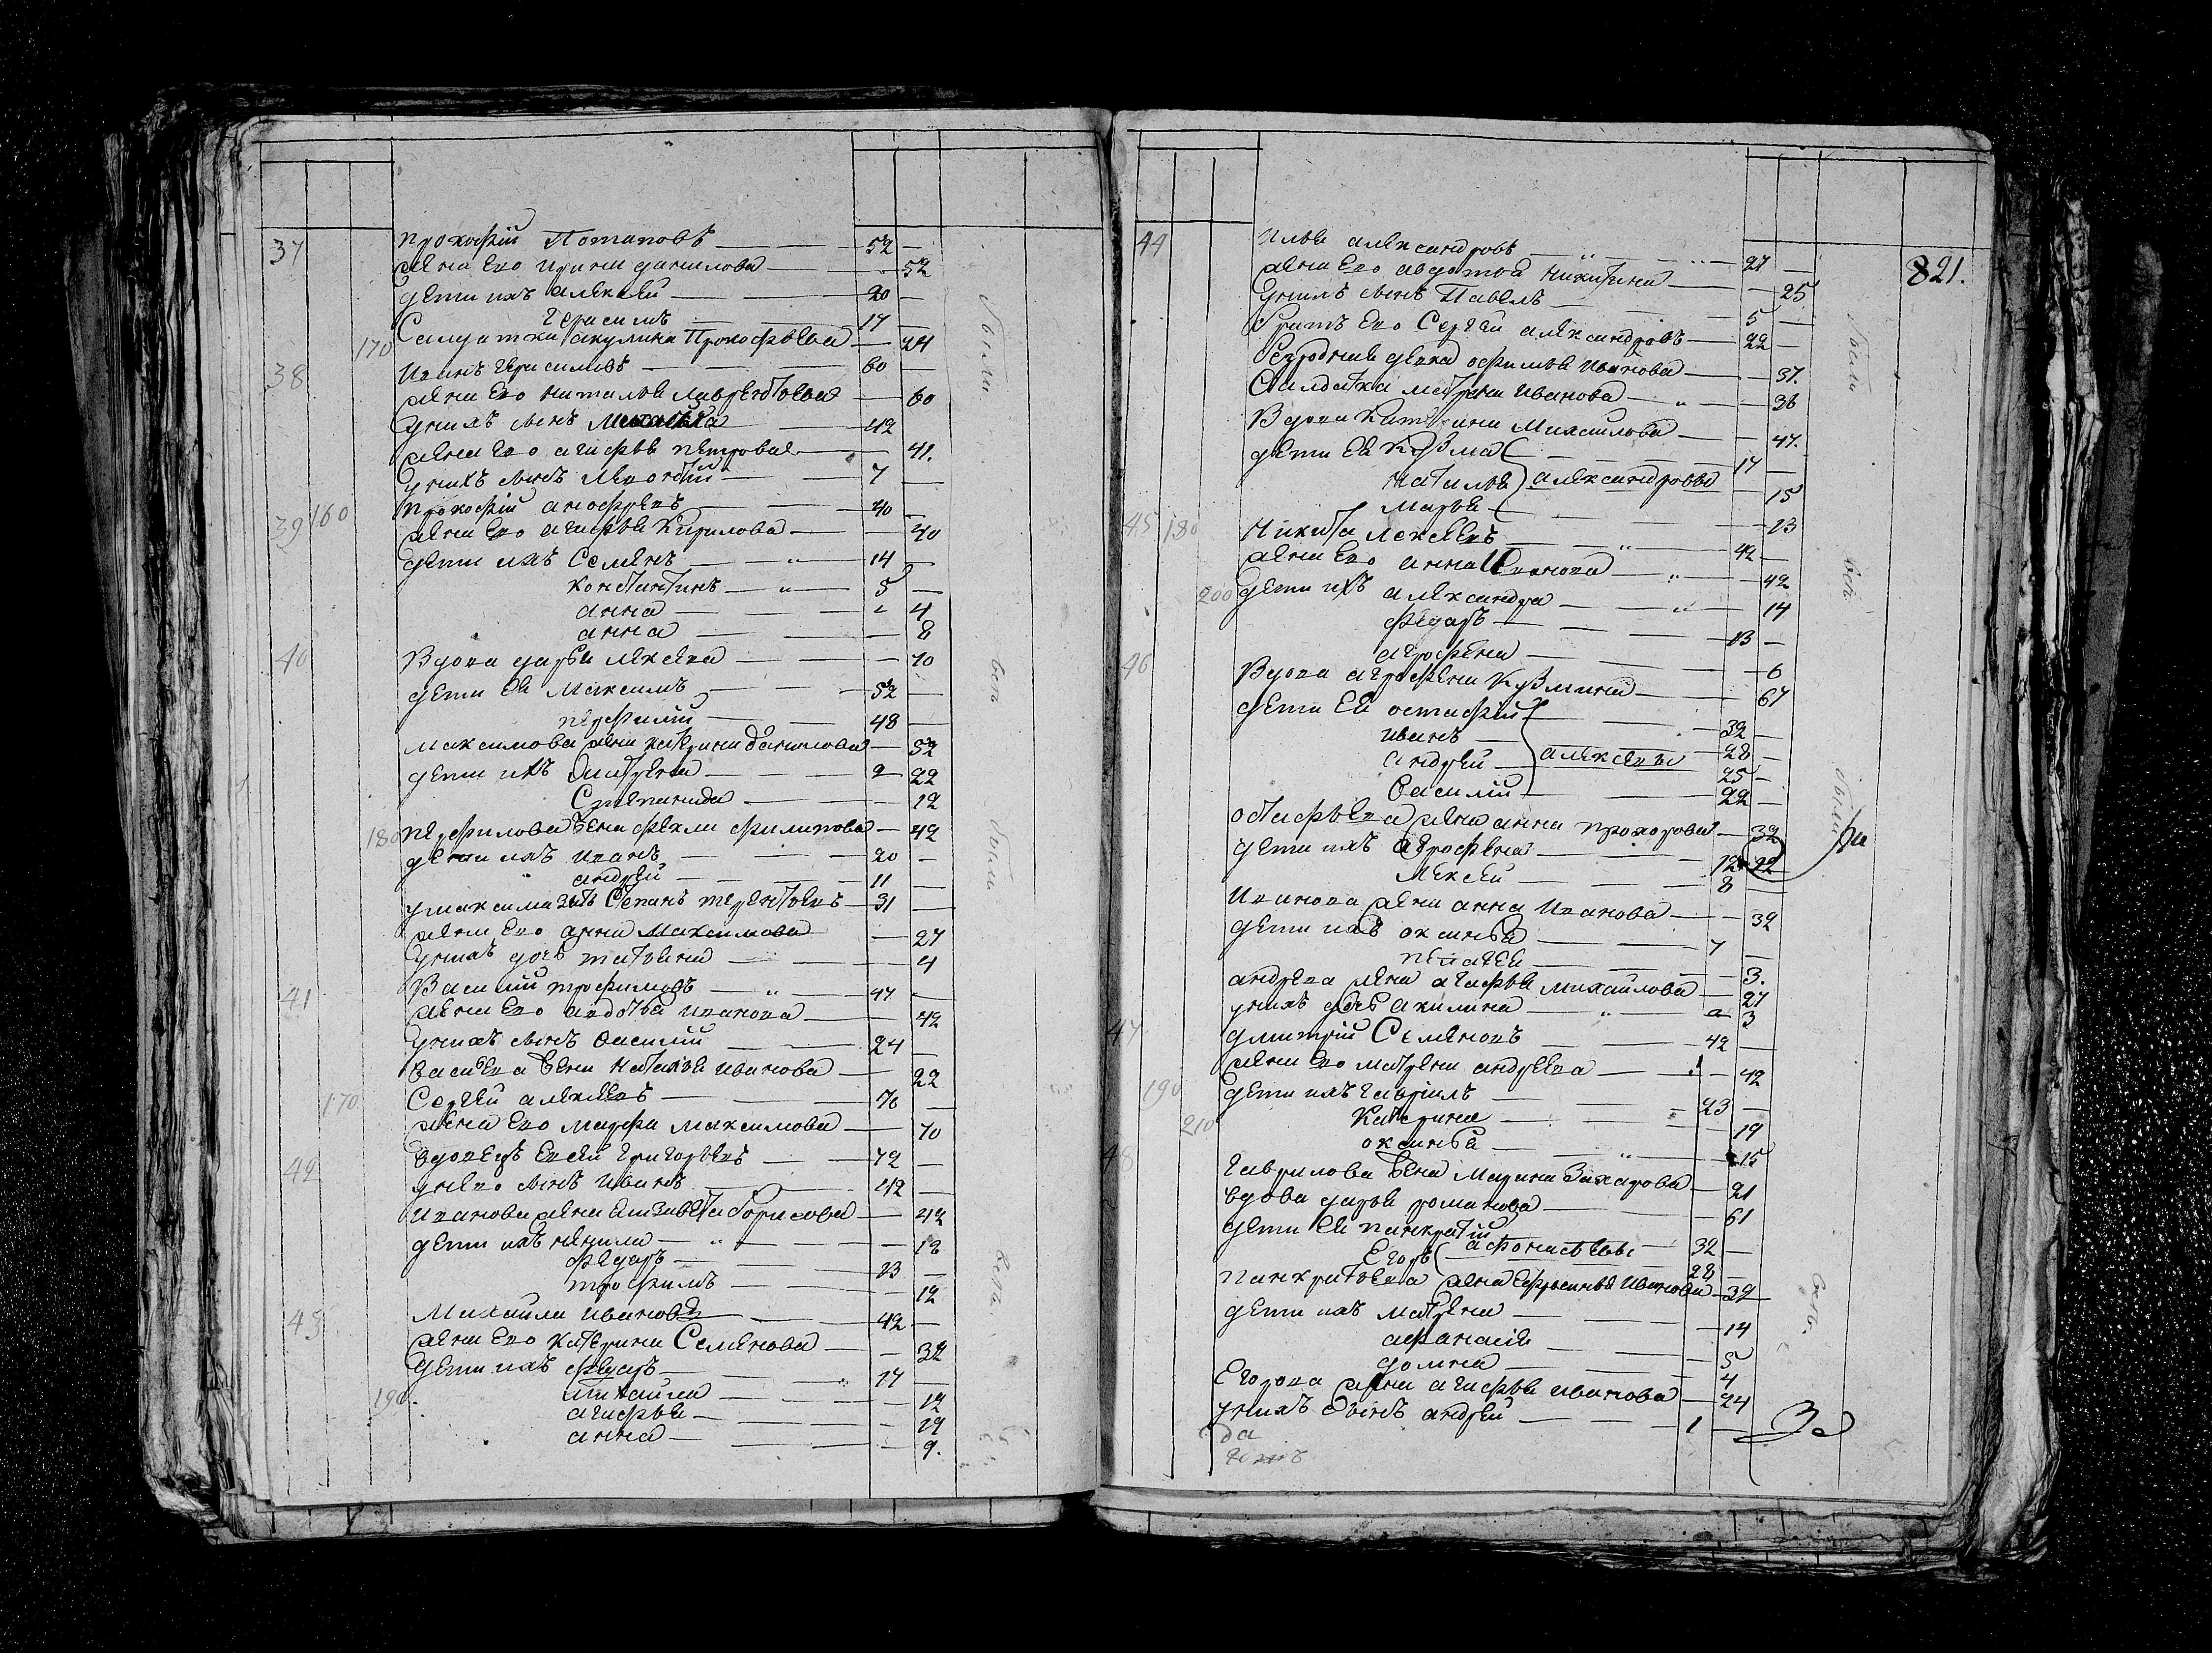 37 Прокофій Потаповъ 52
жена Ево Ирина данилова 52
дети ихъ алексей 20
Герасимъ 17
170 Салдатка акулина Прокофьева 24
38 Иванъ Герасимовъ 60
жена Ево наталья лаврентьева 60
у нихъ сынъ 42
жена Ево агафья петрова 41.
у нихъ сынъ леонтій 7
39 160 Прокофій 40
жена Ево агафья Кирилова 40
дети ихъ Семенъ 14
Констинтинъ 5
анна 4
анна 8
40 Вдова дарья лексева 70
дети Ея Максимъ 52
перфилій 48
максимова жена катерина данилова 52
дети ихъ 2 22
Степанида 12
180 перфилова жена фекла филипова 42
дети ихъ иванъ 20
андрей 11
у максима зять Степанъ терентьевъ 31
жена Ево анна Максимова 27
у нихъ дочь татьяна 4
41 Василій трофимовъ 47
жена Ево авдотья иванова 42
у нихъ сынъ василій 24
васильева жена наталья иванова 22
170 Сергей алексеевъ 70
жена Ево марфа максимова 70
42 вдовецъ Евсей григорьевъ 72
у нево сынъ иванъ 42
иванова жена Елизавета борисова 42
дети ихъ ненила 18
федаръ 13
трофимъ 12
43 Михаила ивановъ 42
жена Ево катерина Семенова 32
дети ихъ федаръ 17
190. 12
агафья 19
анна 9.
были
44 Илья александровъ 27
821.
жена Ево авдотья никитина 25
у нихъ сынъ Павелъ 5
братъ Ево Сергей александровъ 22
девка офимья иванова 37.
Салдатка матрена иванова 36
Вдова Катерина Михаилова 47.
дети Ея Кузма 17
наталья александровы 15
марья 13
45 180 Никита лексеевъ 42
жена Ево анна Иванова 42
200 дети ихъ александра 14
федаръ 13
агрофена 6
46 Вдова агрофена Кузмина 67
дети Ея остафій 32
иванъ 28
андрей алексеевы 25
василій 22
остафьева жена анна прохорова 32
дети ихъ агрофена 12
лексей 8
иванова жена анна иванова 32
дети ихъ оксинья 7
пелагея 3.
андрева жена агафья михаилова 27
у нихъ дочь акилина 3
47 дмитрій Семеновъ 42
жена Ево матрена андреева 42
190 дети ихъ гавріилъ 23
210 Катерина 19
оксинья 15
48 гаврилова жена Марина Захарова 21
вдова дарья романова 61
дети Ея панкратій 32
Егоръ афонасьевы 28
панкратьева жена Ефросинья иванова 32
дети ихъ матрена 14
афанасія 5
домна 4
Егорова жена агафья иванова 24
у нихъ Сынъ андрей 1
да
были